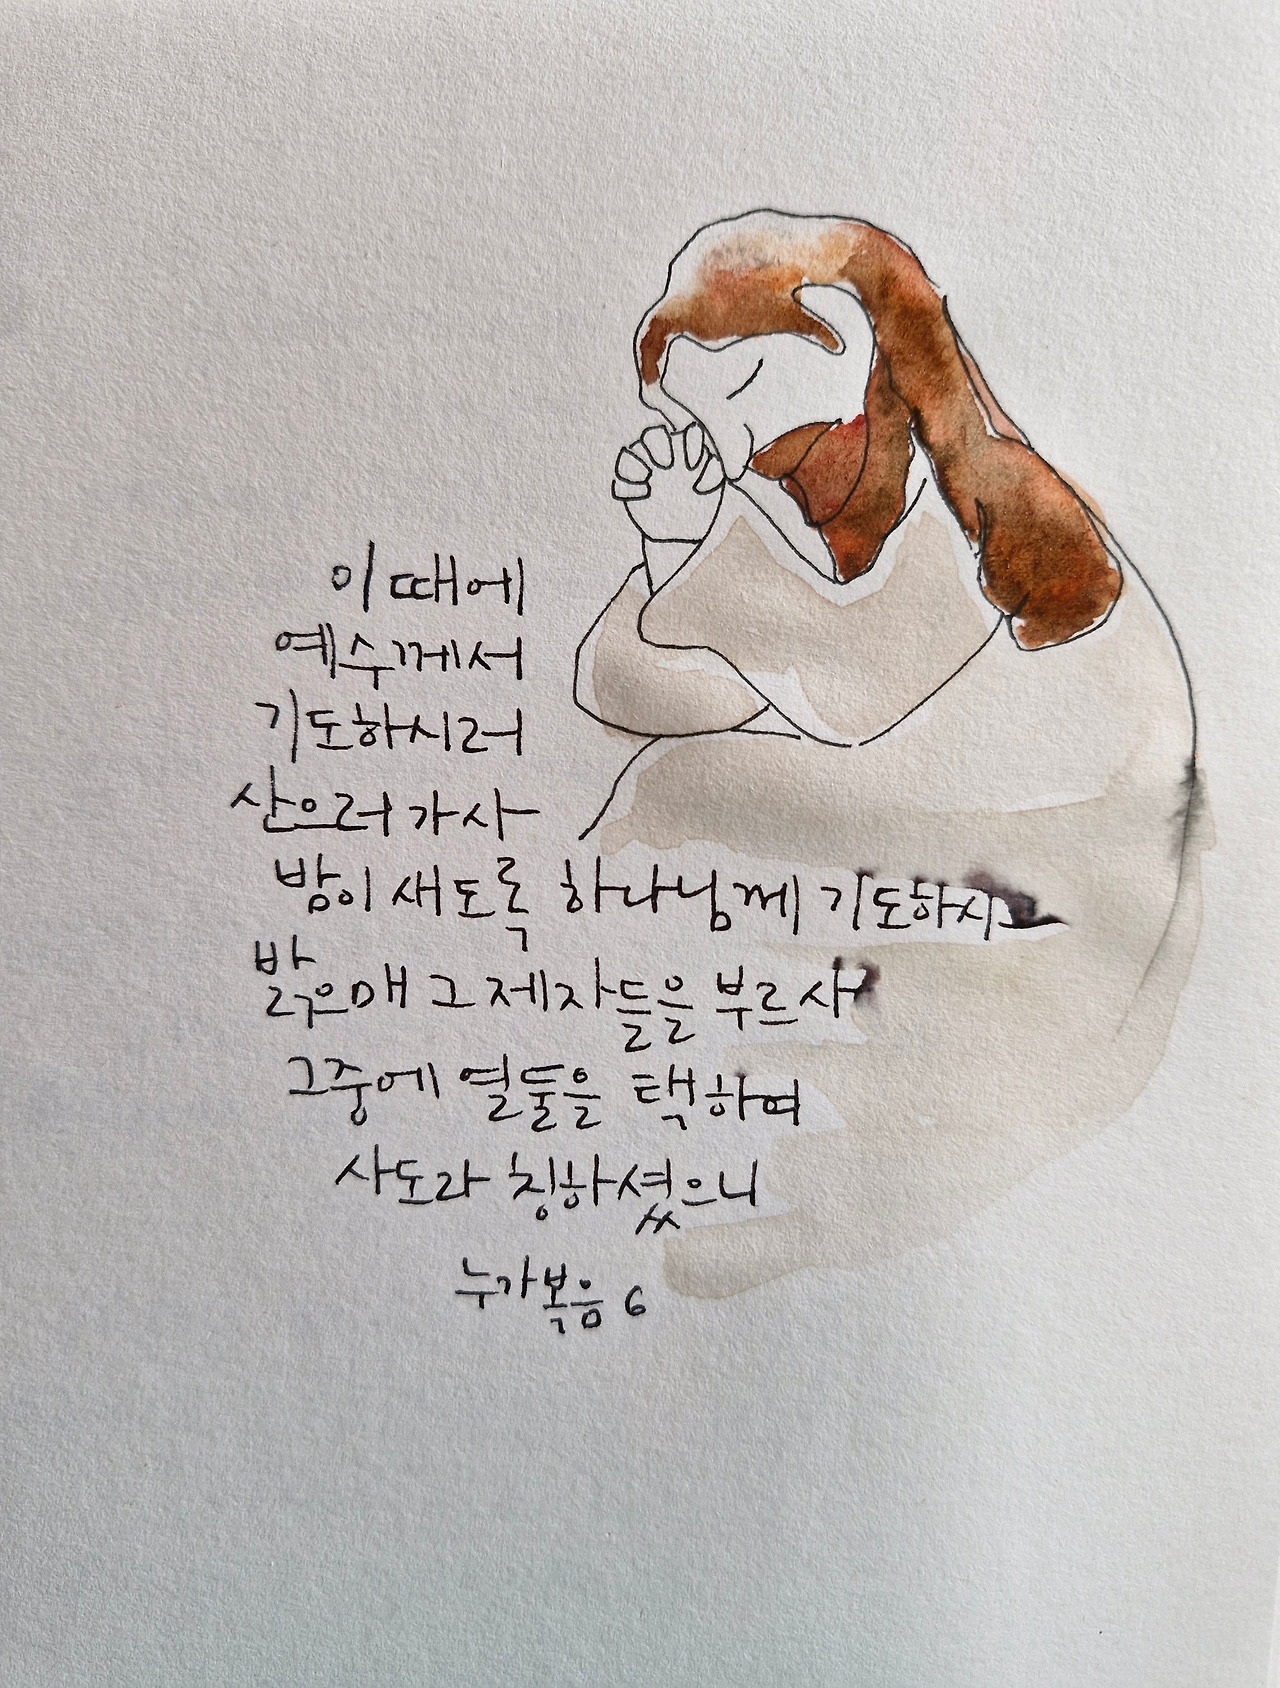 이때에
예수께서
기도하시러
산으로 가사
밤이 새도록 하나님께 기도하시고
밝으매 그 제자들을 부르사
그중에 열둘을 택하여
사도라 칭하셨으니
누가복음 6